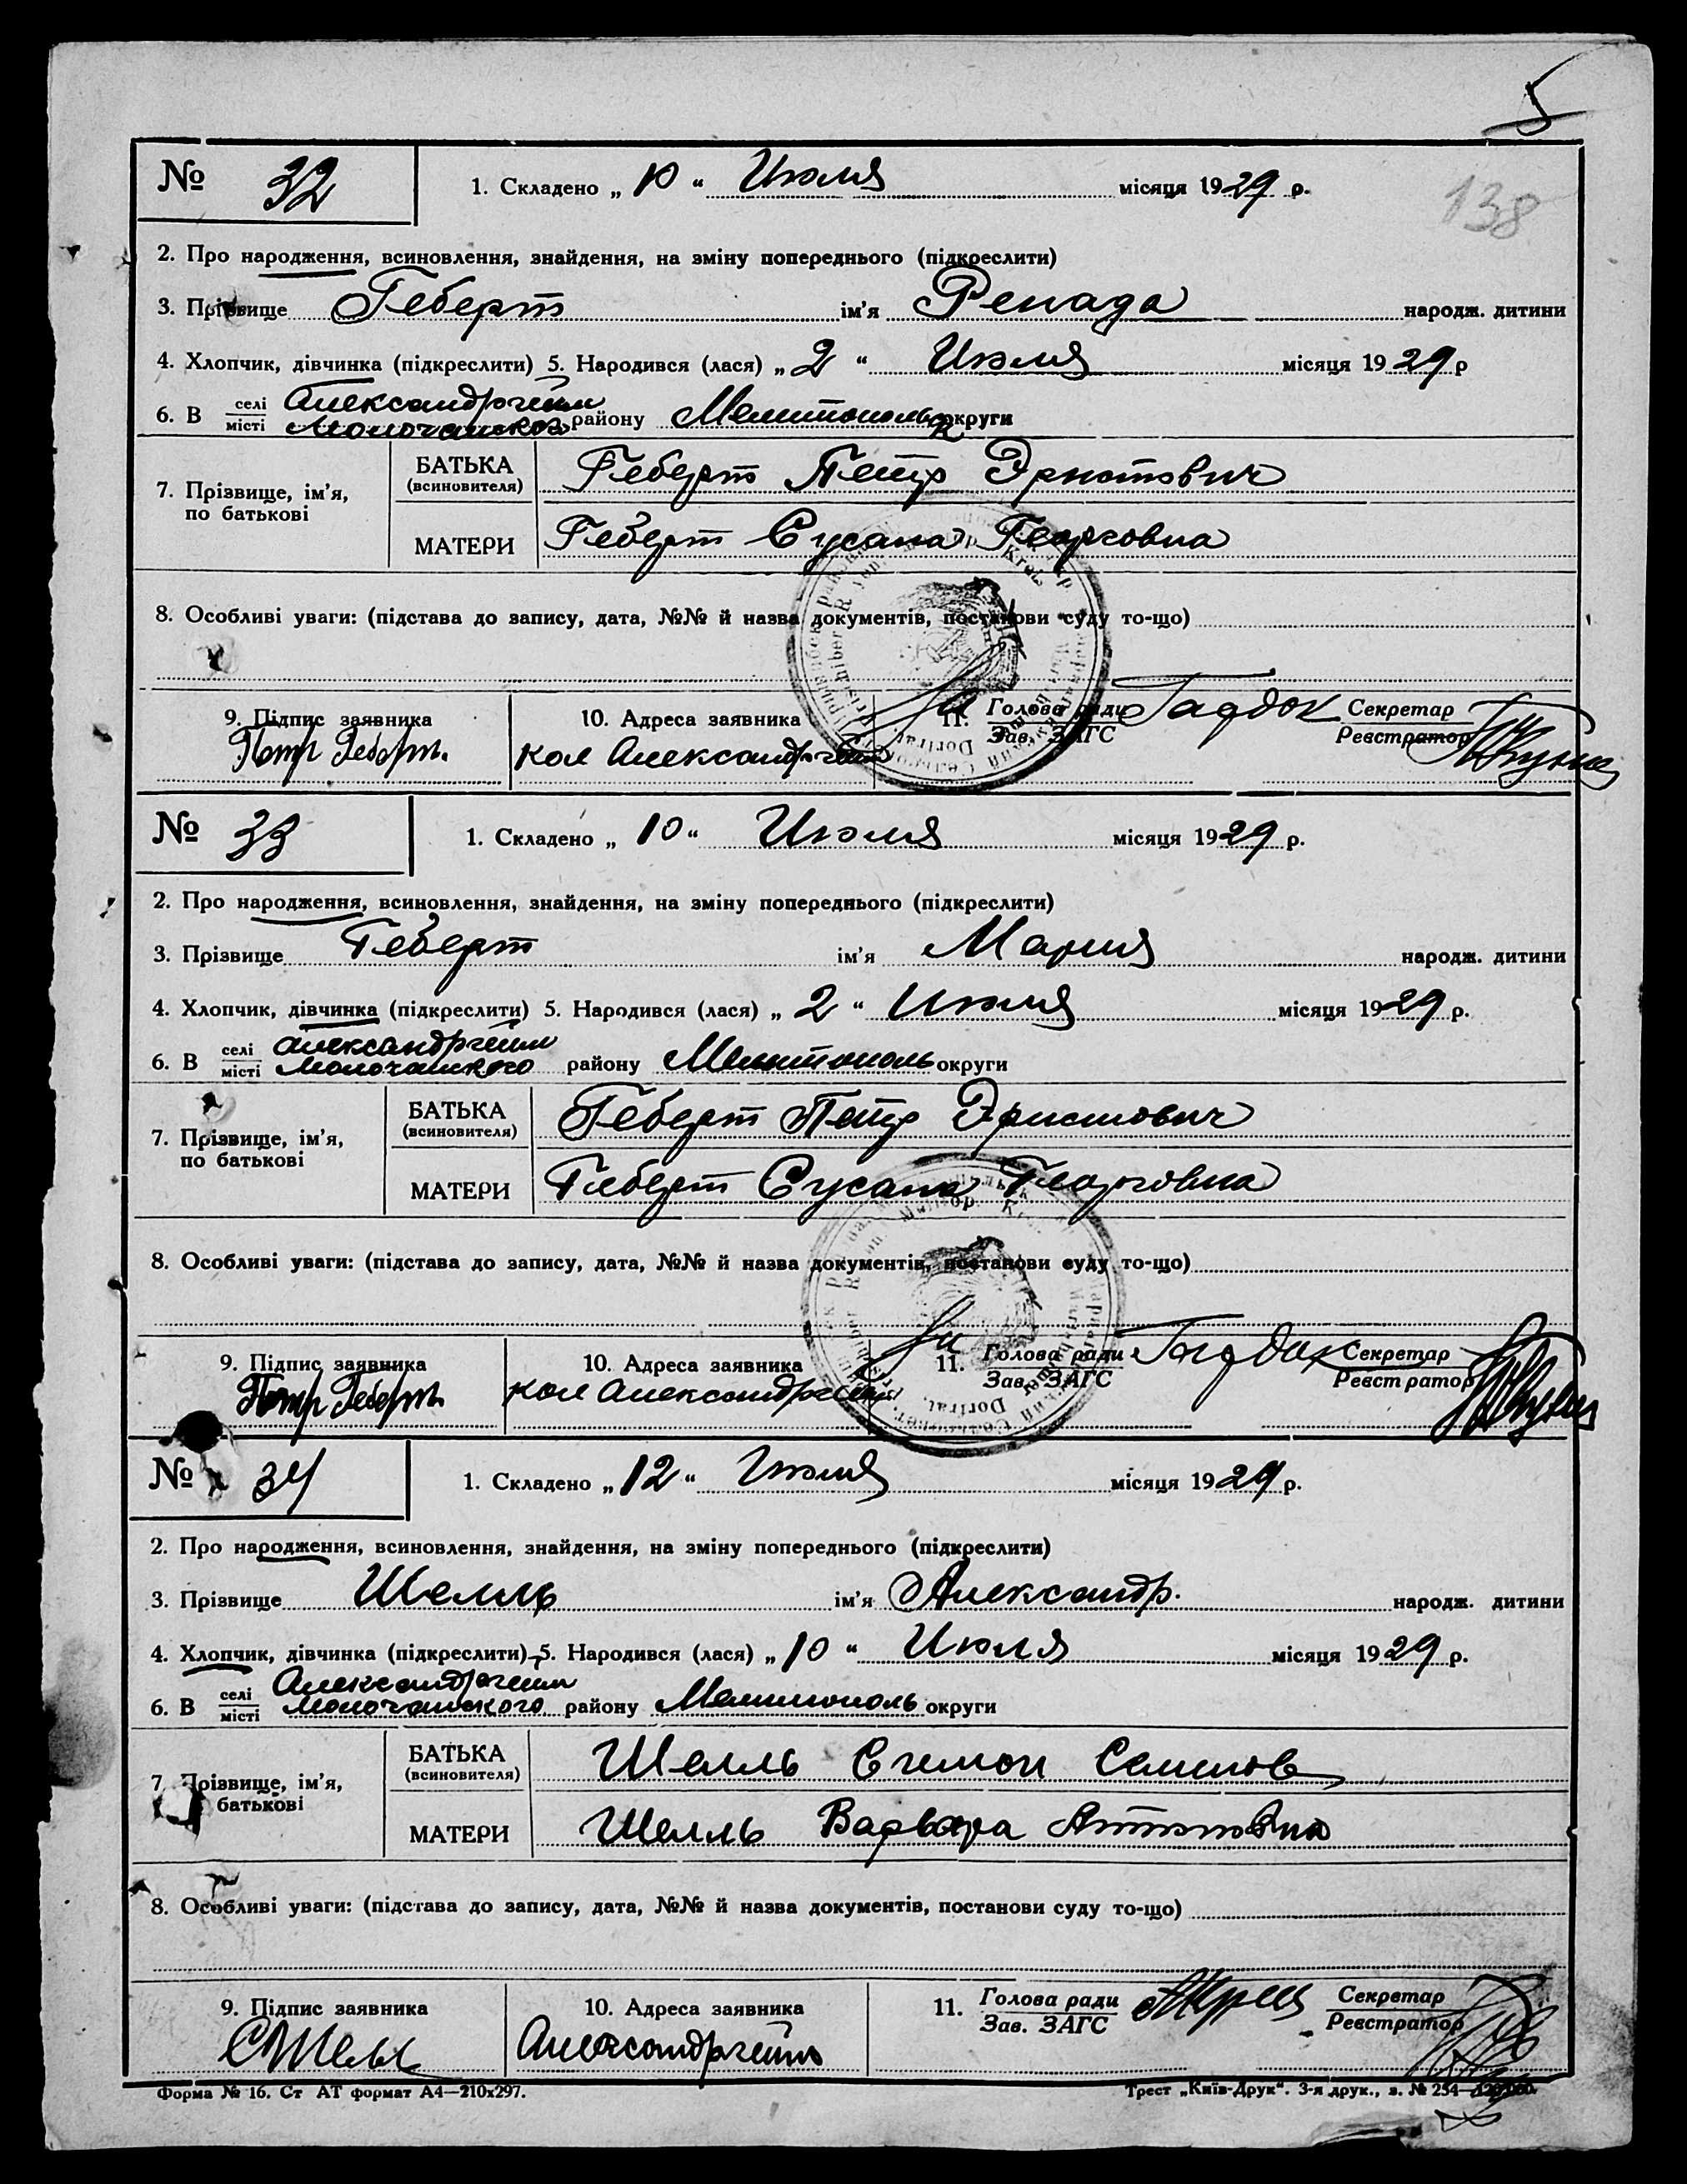 5
138
№ 32 1. Складено „ 10 “ Июля місяця 1929 р.
2. Про народження, всиновлення, знайдення, на зміну попереднього (підкреслити)
3. Прізвище Геберт ім’я Ренада народж. дитини
4. Хлопчик, дівчинка (підкреслити) 5. Народився (лася) „ 2 “ Июля місяця 1929 р
6. В селі місті Александргейм Молочанског району Мелитопольск округи
7. Прізвище, ім’я, по батькові
БАТЬКА (всиновителя) Геберт Петр Эрнстович
МАТЕРИ Геберт Сусана Георговна
8. Особливі уваги: (підстава до запису, дата, №№ й назва документів, постанови суду то-що)
9. Підпис заявника 10. Адреса заявника 11. Голова ради Секретар
Зав. ЗАГС Реєстратор
Петр Геберт. кол Александргейм
№ 33 1. Складено „ 10 “ Июля місяця 1929 р.
2. Про народження, всиновлення, знайдення, на зміну попереднього (підкреслити)
3. Прізвище Геберт ім’я Мария народж. дитини
4. Хлопчик, дівчинка (підкреслити) 5. Народився (лася) „ 2 “ Июля місяця 1929 р.
6. В селі місті Александргейм Молочанского району Мелитополь округи
7. Прізвище, ім’я, по батькові
БАТЬКА (всиновителя) Геберт Петр Эрнстович
МАТЕРИ Геберт Сусана Георговна
8. Особливі уваги: (підстава до запису, дата, №№ й назва документів, постанови суду то-що)
9. Підпис заявника 10. Адреса заявника 11. Голова ради Секретар
Зав. ЗАГС Реєстратор
Петр Геберт. кол Александргейм
№ 34 1. Складено „ 12 “ Июля місяця 1929 р.
2. Про народження, всиновлення, знайдення, на зміну попереднього (підкреслити)
3. Прізвище Шелль ім’я Александр. народж. дитини
4. Хлопчик, дівчинка (підкреслити) 5. Народився (лася) „ 10 “ Июля місяця 1929 р.
6. В селі місті Александргейм Молочанского району Мелитополь округи
7. Прізвище, ім’я, батькові
БАТЬКА (всиновителя) Шелль Семион Семенов
МАТЕРИ Шелль Варвара Антоновна
8. Особливі уваги: (підстава до запису, дата, №№ й назва документів, постанови суду то-що)
9. Підпис заявника 10. Адреса заявника 11. Голова ради Секретар
Зав. ЗАГС Реєстратор
СШелл Александргейм
Форма № 16. Ст АТ формат А4—210х297. Трест „Київ-Друк“. 3-я друк., з. № 254—